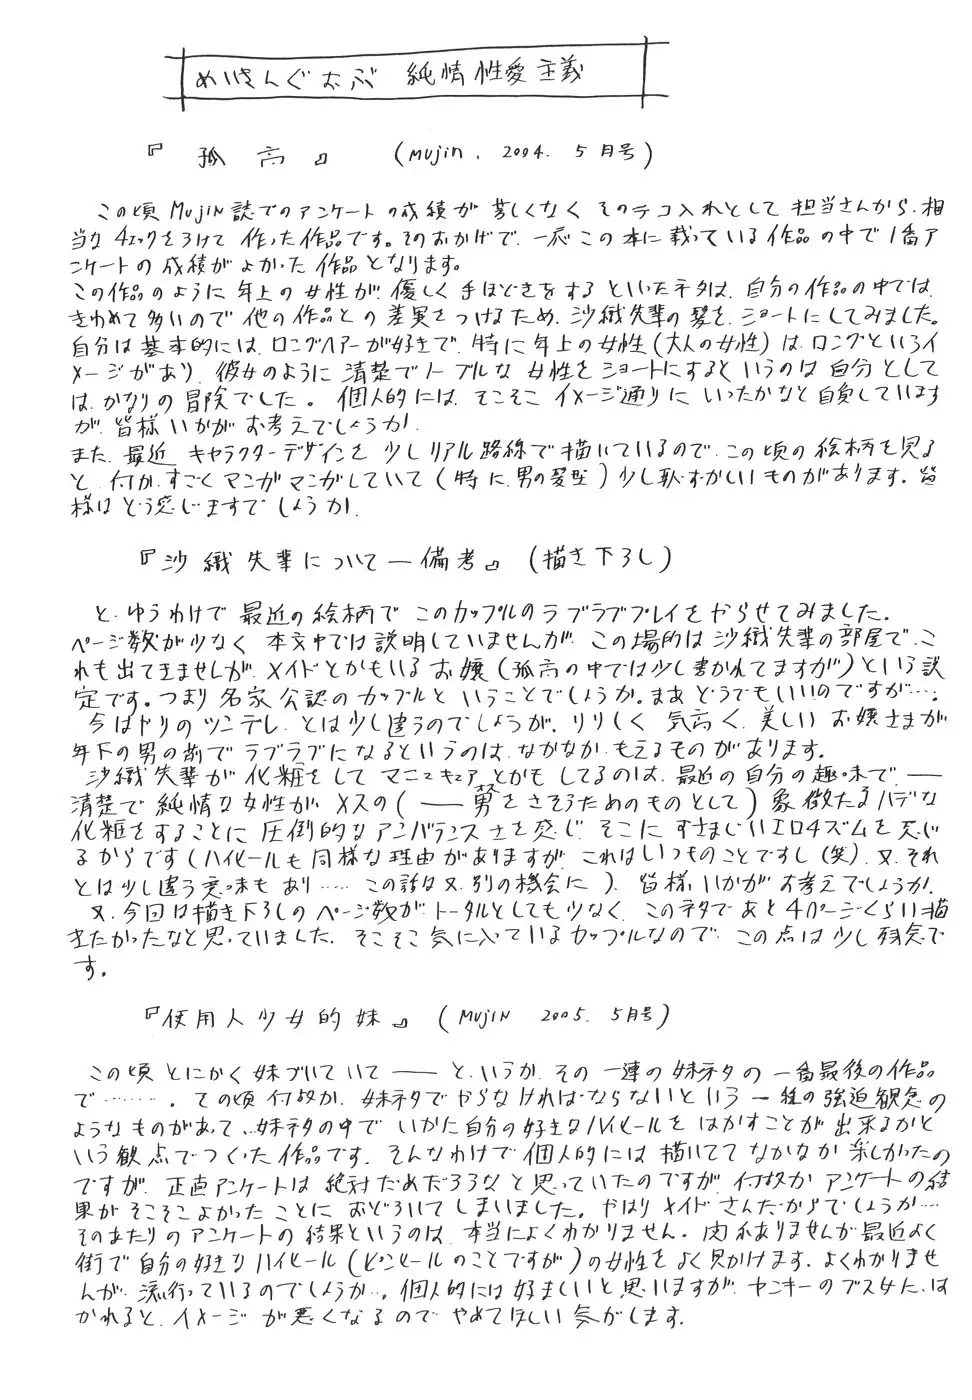 めいきんぐおぶ 純情性愛主義
『孤高』 (MUJIN. 2004. 5月号)
この頃MUJIN誌でのアンケートの成績が芳しくなくそのテコ入れとして担当さんから、相
当なチェックをうけて作った作品です。そのおかげで、一応この本に載っている作品の中で1番ア
ンケートの成績がよかった作品となります。
この作品のように年上の女性が、優しく手ほどきをするといったネタは、自分の作品の中では、
きわめて多いので他の作品との差異をつけるため、沙織先輩の髪を、ショートにしてみました。
自分は基本的には、ロングヘアーが好きで、特に年上の女性(大人の女性)は、ロングというイ
メージがあり、彼女のように清楚でノーブルな女性をショートにするというのは自分として
は、かなりの冒険でした。個人的には、そこそこイメージ通りにいったかなと自負しています
が、皆様いかがお考えでしょうか。
また、最近キャラクターデザインを少しリアル路線で描いているので、この頃の絵柄を見る
と、何か、すごくマンガマンガしていて(特に、男の髪型)少し恥ずかしいものがあります。皆
様はどう感じますでしょうか。
『沙織先輩について―備考』(描き下ろし)
と、ゆうわけで最近の絵柄でこのカップルのラブラブプレイをやらせてみました。
ページ数が少なく本文中では説明していませんが、この場所は沙織先輩の部屋で、こ
れも出てきませんが、メイドとかもいるお嬢(孤高の中では少し書かれてますが)という設
定です。つまり名家公認のカップルということでしょうか。まあどうでもいいのですが…。
今はやりのツンデレ、とは少し違うのでしょうが、りりしく気高く、美しいお嬢さまが
年下の男の前でラブラブになるというのは、なかなかもえるものがあります。
沙織先輩が化粧をしてマニュキュアとかもしてるのは、最近の自分の趣味で、――
清楚で純情な女性がメスの(――男をさそうためのものとして)象徴たるハデな
化粧をすることに圧倒的なアンバランスさを感じ、そこにすさまじいエロチズムを感じ
るからです(ハイヒールも同様な理由がありますが、これはいつものことですし(笑)、又、それ
とは少し違う意味もあり……この話は又、別の機会に)。皆様、いかがお考えでしょうか。
又、今回は描き下ろしのページ数が、トータルとしても少なく、このネタであと4ページくらい描
きたかったなと思っていました。そこそこ気に入っているカップルなので、この点は少し残念で
す。
『使用人少女的妹』(MUJIN 2005. 5月号)
この頃とにかく妹づいていて――というか、その一連の妹ネタの一番最後の作品
で………。この頃何故か、妹ネタでやらなければならないという一種の強迫観念の
ようなものがあって、妹ネタの中でいかに自分の好きなハイヒールをはかすことが出来るかと
いう観点でつくった作品です。そんなわけで個人的には描いててなかなか楽しかったの
ですが、正直アンケートは絶対だめだろうなと思っていたのですが、何故かアンケートの結
果がそこそこよかったことにおどろいてしまいました。やはりメイドさんだからでしょうか…。
そのあたりのアンケートの結果というのは、本当によくわかりません。関係ありませんが最近よく
街で自分の好きなハイヒール(ピンヒールのことですが)の女性をよく見かけます。よくわかりませ
んが、流行っているのでしょうか。個人的には好ましいと思いますが、ヤンキーのブス女に、は
かれると、イメージが悪くなるのでやめてほしい気がします。